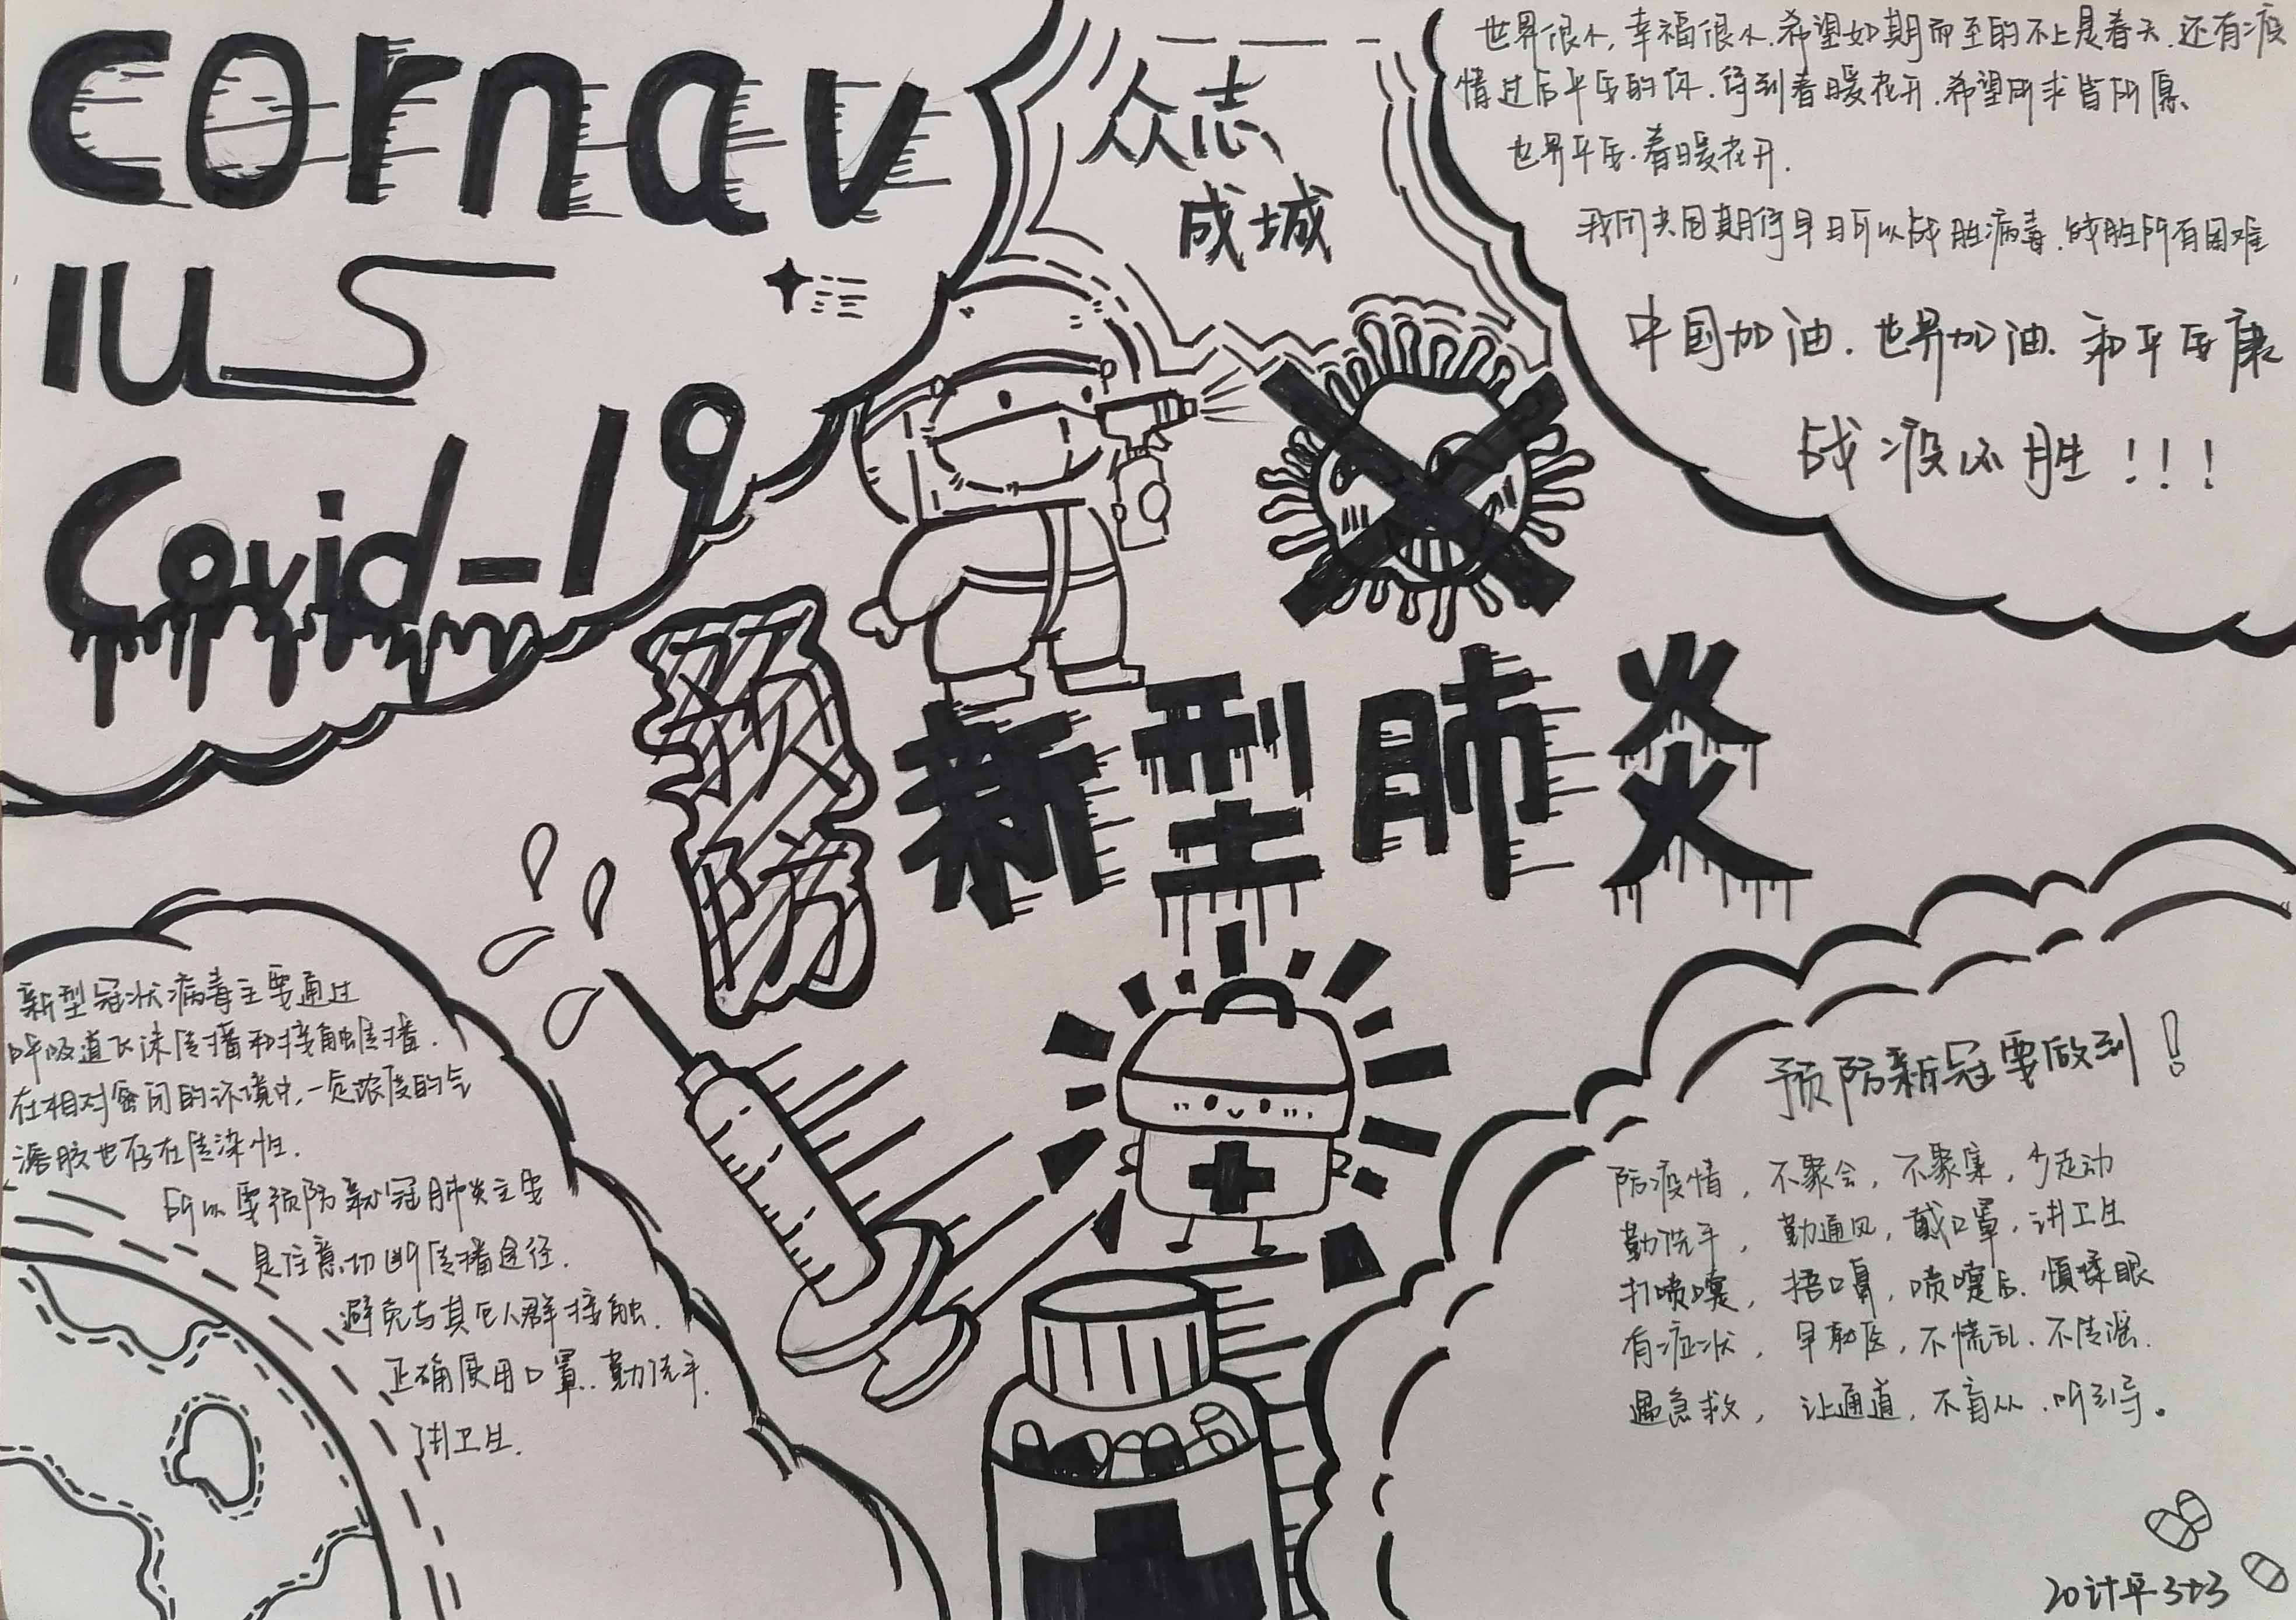 cornav
ius
Covid-19
众志
成城
世界很大,幸福很小.希望如期而至的不止是春天.还有疫
情过后平安的你.等到春暖花开.希望所求皆所愿.
世界平安.春暖花开.
我们共同期待早日可以战胜病毒.战胜所有困难
中国加油.世界加油.和平安康
战疫必胜!!!
预防
新型肺炎
新型冠状病毒主要通过
呼吸道飞沫传播和接触传播.
在相对密闭的环境中,一定浓度的气
溶胶也存在传染性.
所以要预防新冠肺炎主要
是注意切断传播途径.
避免与其它人群接触.
正确使用口罩.勤洗手.
讲卫生.
预防新冠要做到!
防疫情,不聚会,不聚集,少走动
勤洗手,勤通风,戴口罩,讲卫生
打喷嚏,捂口鼻,喷嚏后.慎揉眼
有症状,早就医,不慌乱.不传谣.
遇急救,让通道,不盲从.听引导。
20计平3+3